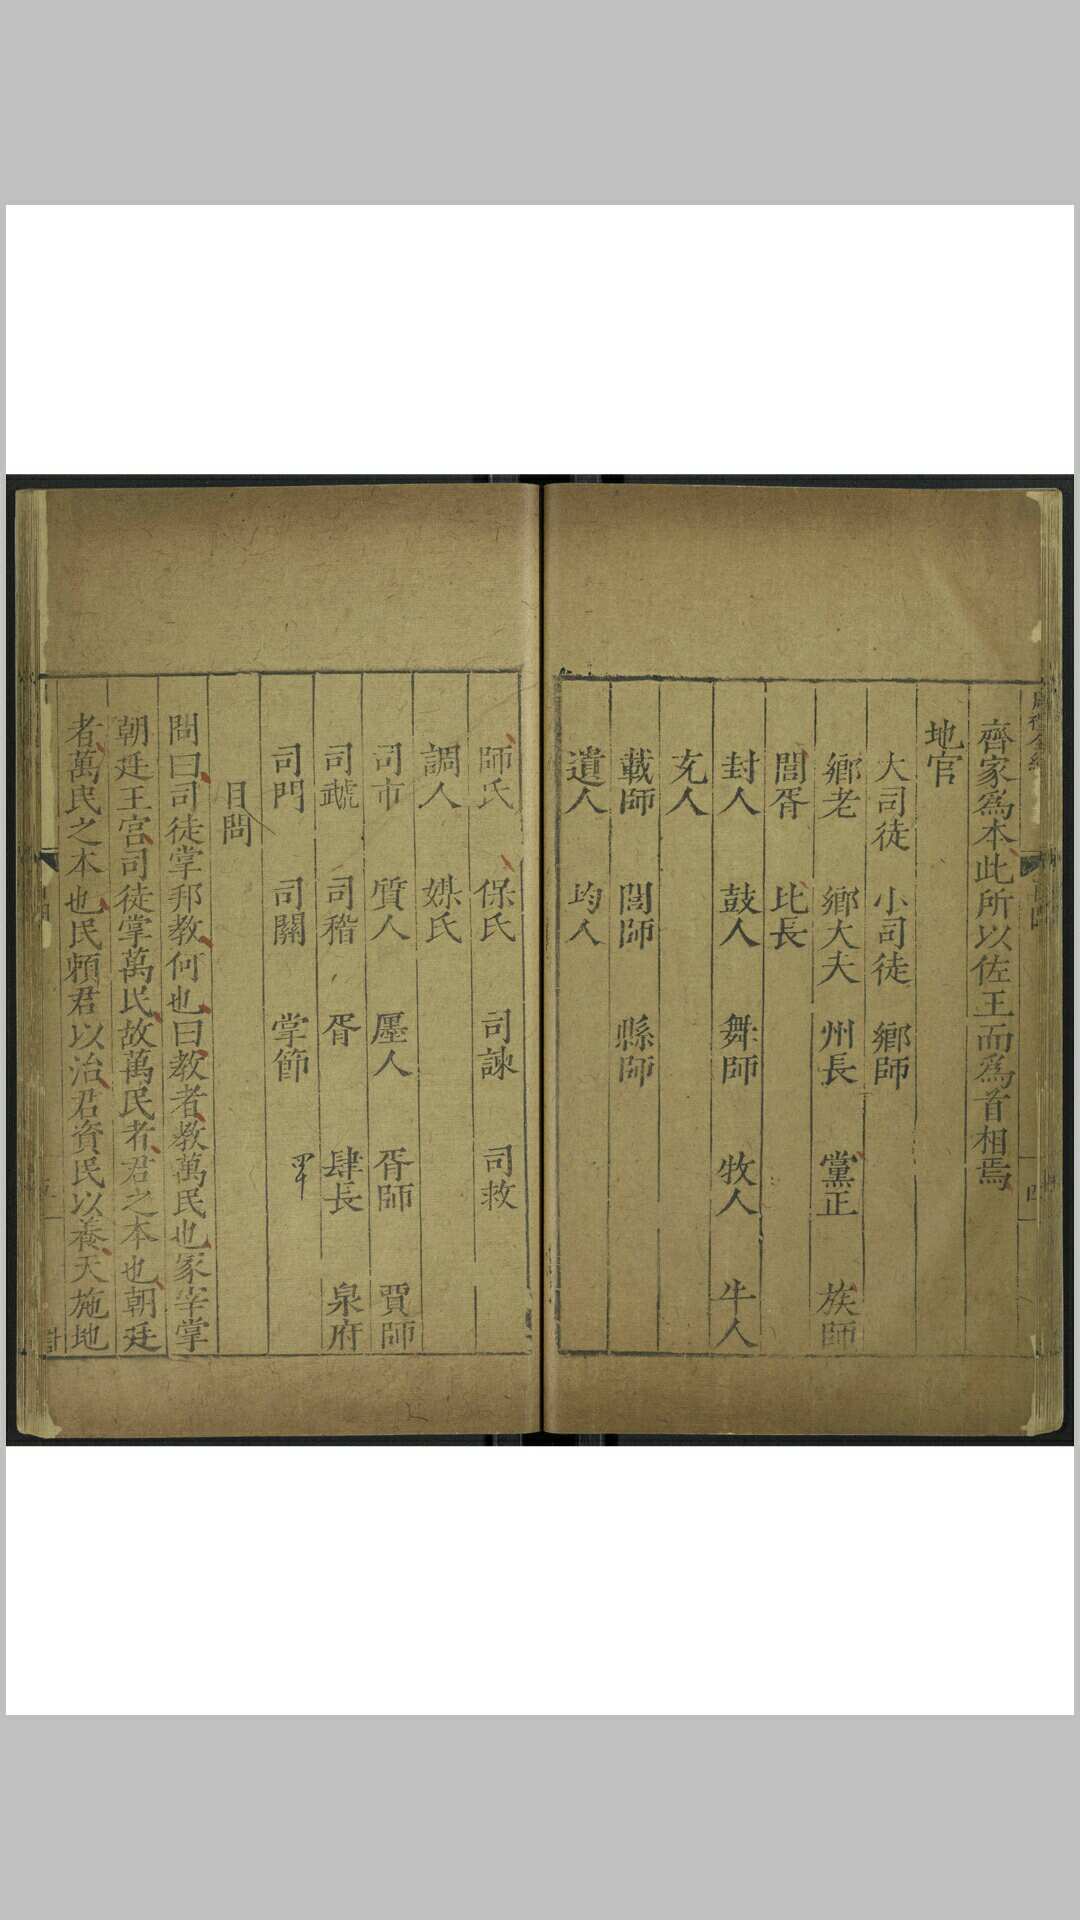 齊家爲本此所以佐王而爲首相焉
地官
大司徒 小司徒 鄉師
鄉老 鄉大夫 州長 黨正 族師
閭胥 比長
封人 鼓人 舞師 牧人 牛人
充人
載師 閭師 縣師
遺人 均人
師氏 保氏 司諫 司救
調人 媒氏
司市 質人 廛人 胥師 賈師
司虣 司稽 胥 肆長 泉府
司門 司關 掌節
目問
問曰司徒掌邦教何也曰教者教萬民也冢宰掌
朝廷王宮司徒掌萬民故萬民者君之本也朝廷
者萬民之本也民賴君以治君資民以養天施地